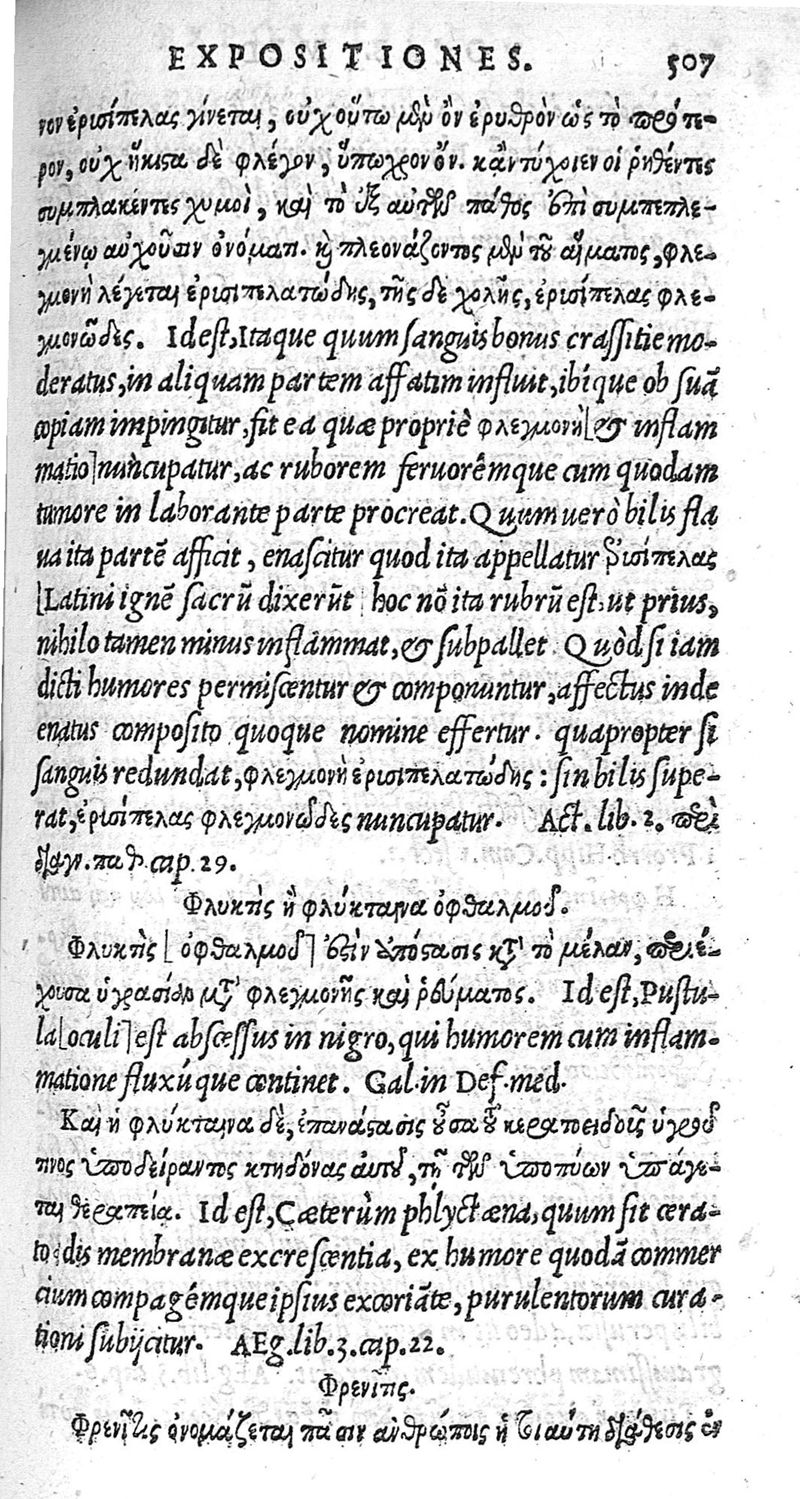 EXPOSITIONES. 507
νον ἐρισίπελας γίνεται, οὐχ οὕτω μὲν ὂν ἐρυθρὸν ὡς τὸ πρότε-
ρον, οὐχ ἥκιστα δὲ φλέγον, ὕπωχρον ὄν. κἂν τύχοιεν οἱ ῥηθέντες
συμπλακέντες χυμοὶ, καὶ τὸ ἐξ αὐτῶν πάθος ἐπὶ συμπεπλε-
γμένῳ αὐχοῦσιν ὀνόματι. καὶ πλεονάζοντος μὲν τοῦ αἵματος, φλε-
γμονὴ λέγεται ἐρισιπελατώδης, τῆς δὲ χολῆς, ἐρισίπελας φλε-
γμονῶδες. Id est, Itaque quum sanguis bonus crassitie mo-
deratus, in aliquam partem affatim influit, ibíque ob suã
copiam impingitur, fit ea quæ propriè φλεγμονὴ [& inflam
matio] nuncupatur, ac ruborem feruorémque cum quodam
tumore in laborante parte procreat. Quum uerò bilis fla
ua ita partẽ afficit, enascitur quod ita appellatur ἐρισίπελας
[Latini ignẽ sacrũ dixerũt] hoc nõ ita rubrũ est, ut prius,
nihilo tamen minus inflammat, & subpallet. Quòd si iam
dicti humores permiscentur & componuntur, affectus inde
enatus composito quoque nomine effertur. quapropter si
sanguis redundat, φλεγμονὴ ἐρισιπελατώδης: sin bilis supe-
rat, ἐρισίπελας φλεγμονῶδες nuncupatur. Act. lib. 2. περὶ
διαγν. παθ. cap. 29.
Φλυκτὶς ἢ φλύκταινα ὀφθαλμοῦ.
Φλυκτὶς [ὀφθαλμοῦ] ἐστὶν ἀπόστασις κατὰ τὸ μέλαν, περιέ-
χουσα ὑγρασίαν μετὰ φλεγμονῆς καὶ ῥεύματος. Id est, Pustu-
la [oculi] est abscessus in nigro, qui humorem cum inflam-
matione fluxúque continet. Gal. in Def. med.
Καὶ ἡ φλύκταινα δὲ, ἐπανάστασις οὖσα τοῦ κερατοειδοῦς ὑγροῦ
τινος ὑποδείραντος κτηδόνας αὐτοῦ, τῇ τῶν ὑποπύων ὑπάγε-
ται θεραπεία. Id est, Cæterùm phlyctæna, quum sit cera-
toidis membranæ excrescentia, ex humore quodã commer
cium compagémque ipsius excoriãte, purulentorum cura-
tioni subijcitur. AEg. lib. 3. cap. 22.
Φρενῖτις.
Φρενῖτις ὀνομάζεται πᾶσιν ἀνθρώποις ἡ τοιαύτη διάθεσις ἐν